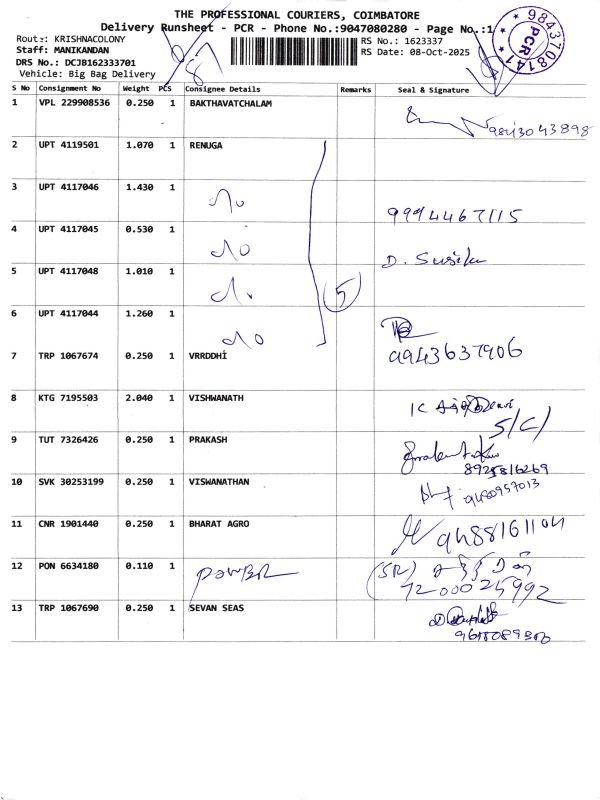 THE PROFESSIONAL COURIERS, COIMBATORE
Delivery Runsheet - PCR - Phone No.:9047080280 - Page No.:1
Route: KRISHNACOLONY
RS No.: 1623337
Staff: MANIKANDAN
RS Date: 08-Oct-2025
DRS No.: DCJB162333701
Vehicle: Big Bag Delivery
9843708147
PCR
S No Consignment No Weight PCS Consignee Details Remarks Seal & Signature
1 VPL 229908536 0.250 1 BAKTHAVATCHALAM
9843043898
2 UPT 4119501 1.070 1 RENUGA
3 UPT 4117046 1.430 1
9994467115
4 UPT 4117045 0.530 1
D. Susila
5 UPT 4117048 1.010 1
5
6 UPT 4117044 1.260 1
9943637906
7 TRP 1067674 0.250 1 VRRDDHİ
8 KTG 7195503 2.040 1 VISHWANATH
S/C/
9 TUT 7326426 0.250 1 PRAKASH
8925816269
10 SVK 30253199 0.250 1 VISWANATHAN
9480957013
11 CNR 1901440 0.250 1 BHARAT AGRO
9488161104
12 PON 6634180 0.110 1 POWER
(SR)
7200025992
13 TRP 1067690 0.250 1 SEVAN SEAS